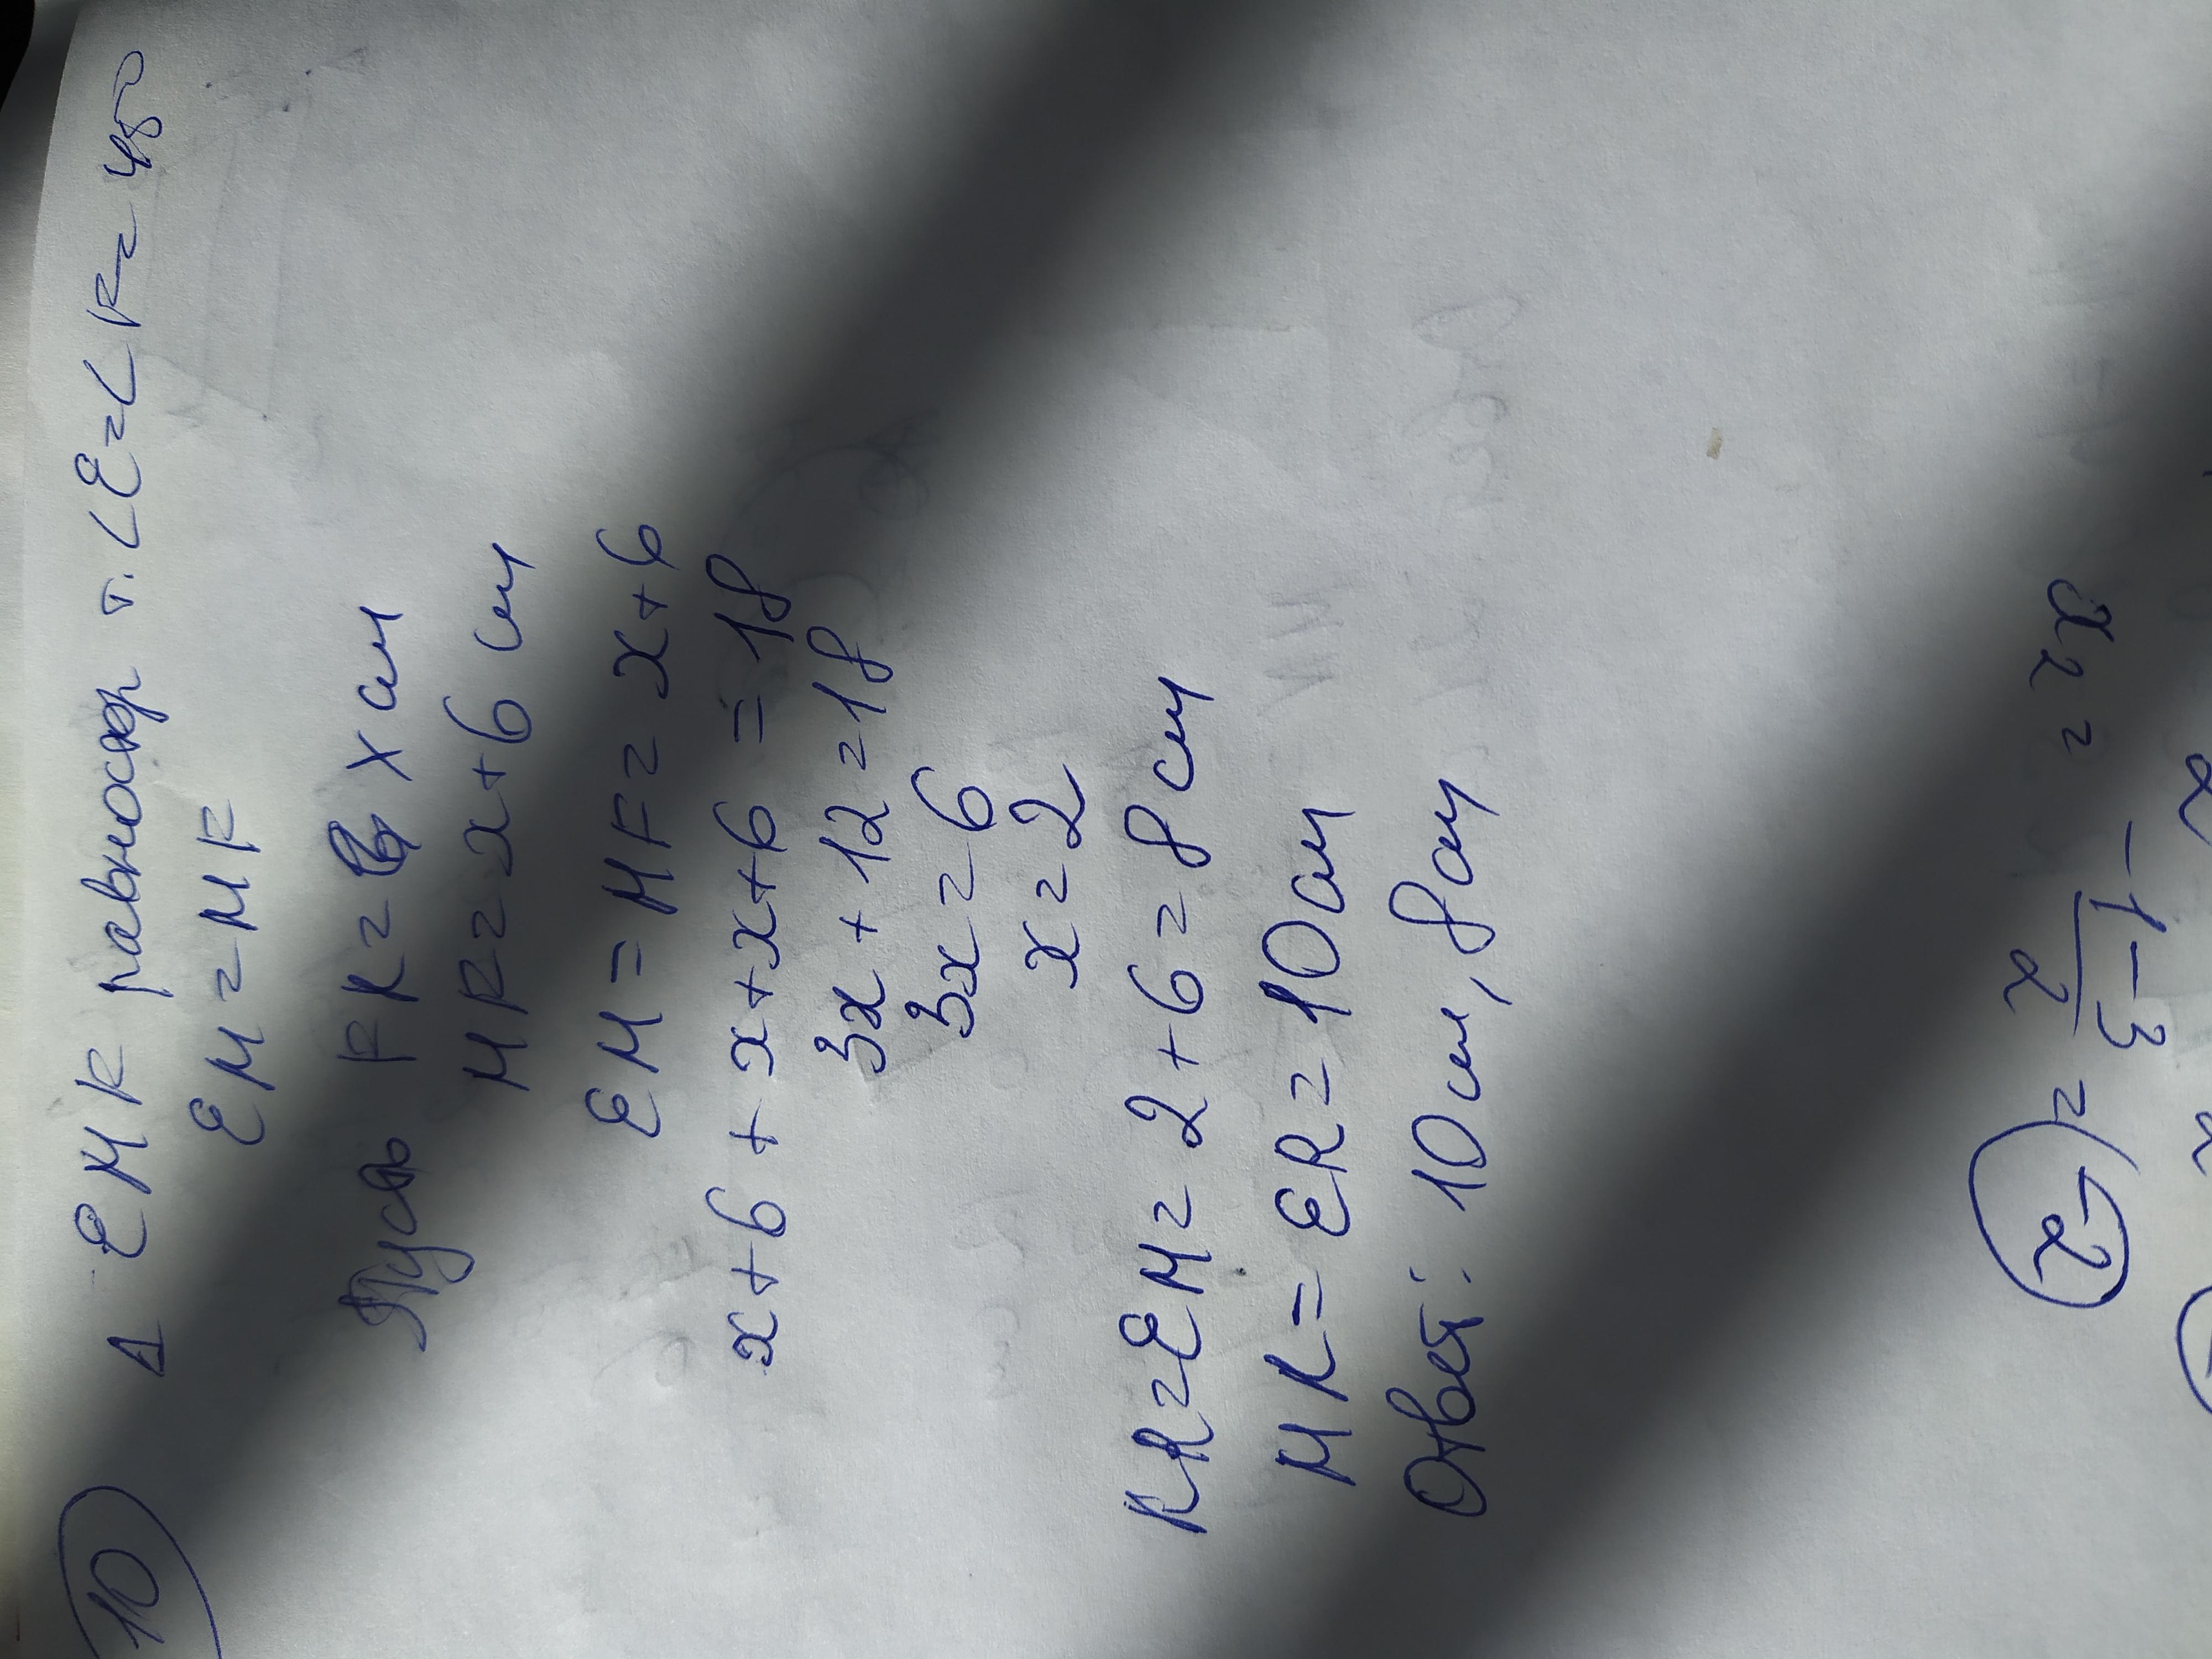 10
Δ EMF равнобедр т. ∠E=∠F=45°
EM=MF
Пусть FK= x см
MF=x+6 см
EM = MF= x+6
x+6+x+x+6 = 18
3x+12=18
3x=6
x=2
KR=EM= 2+6=8 см
MK = ER= 10 см
Ответ: 10 см, 8 см
x2 = -1-3/2 = -2